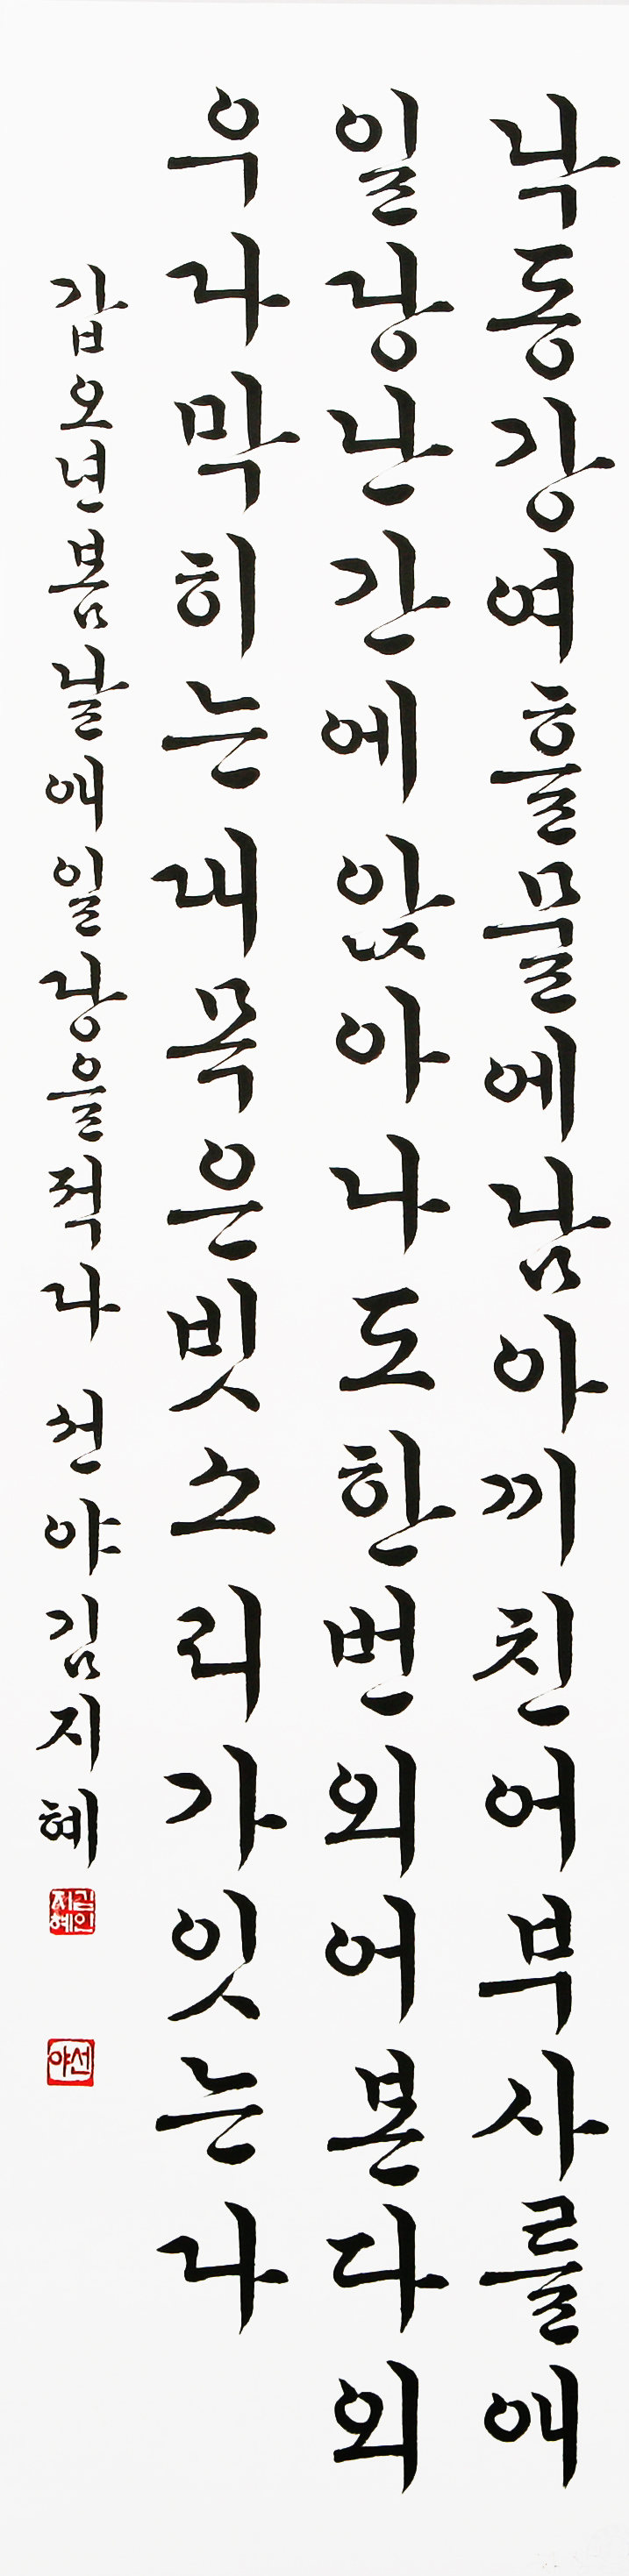 낙동강여흘물에남아끼친어부사를애
일당난간에앉아나도한번외어본다외
우다막히는대목은빗소리가잇는다
갑오년봄날애일당을적다 선야김지혜
김인지혜
선야